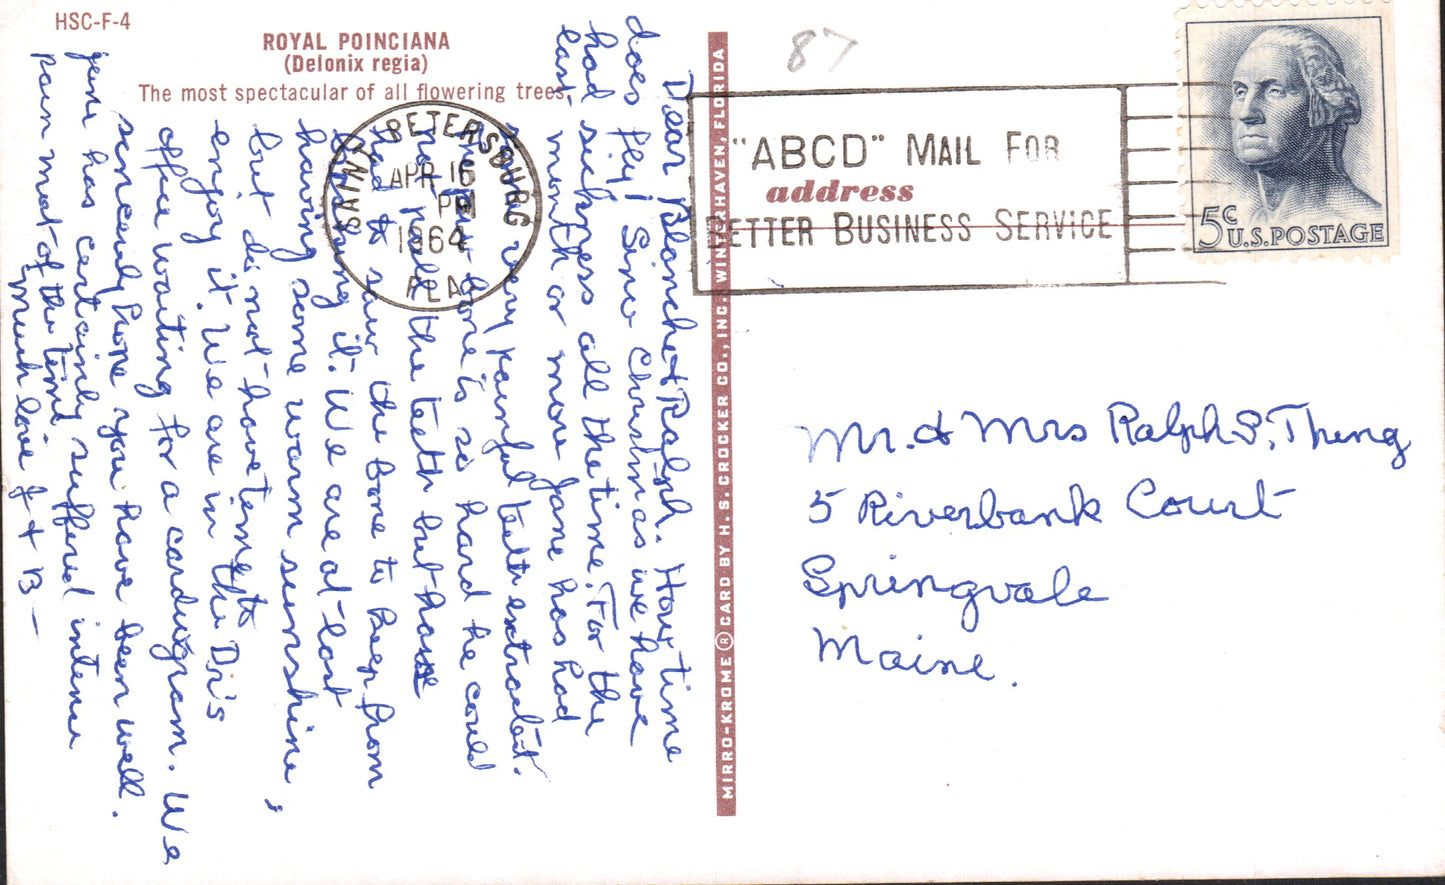 HSC-F-4
ROYAL POINCIANA
(Delonix regia)
The most spectacular of all flowering trees.
SAINT PETERSBURG
APR 16
PM
1964
FLA
87
"ABCD" MAIL FOR
BETTER BUSINESS SERVICE
address
5c
U.S. POSTAGE
MIRRO-KROME ® CARD BY H. S. CROCKER CO., INC. WINTERHAVEN, FLORIDA
Dear Blanche & Ralph. How time
does fly! Since Christmas we have
had sickness all the time. For the
last month or more Jane has had
some very painful teeth extracted.
The bone is so hard he could
not pull the teeth but have
had to saw the bone to keep from
breaking it. We are at last
having some warm sunshine,
but do not have time to
enjoy it. We are in the Dr's
office waiting for a cardiogram. We
sincerely hope you have been well.
Jane has certainly suffered intense
pain most of the time.
Much love J + B —
Mr. & Mrs Ralph S. Thing
5 Riverbank Court
Springvale
Maine.